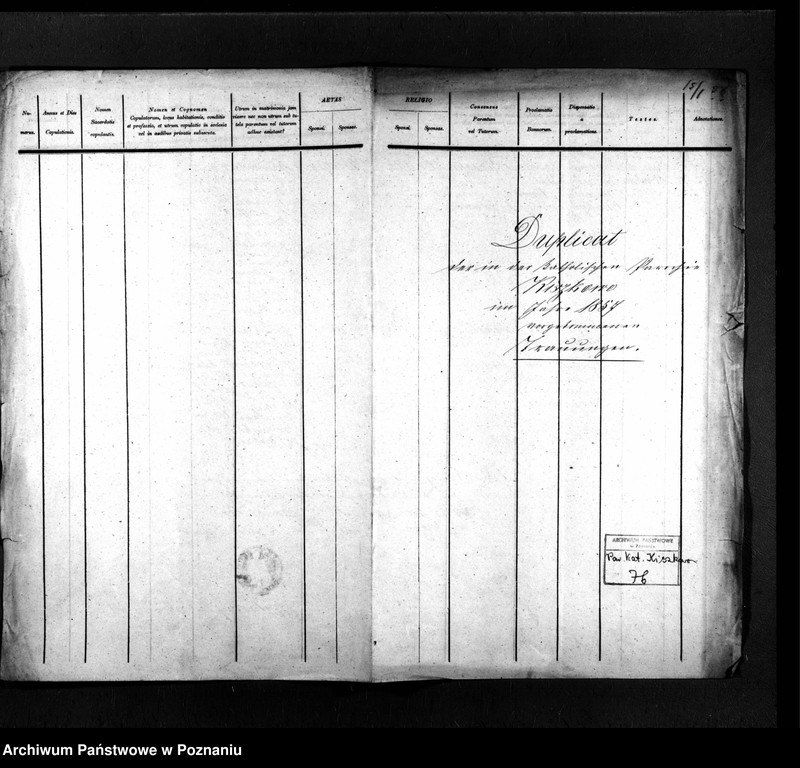 Nu-
merus.
Annus et Dies
Copulationis.
Nomen
Sacerdotis
copulantis.
Nomen et Cognomen
Copulatorum, locus habitationis, conditio
et professio, et utrum copulatio in ecclesia
vel in aedibus privatis subsecuta.
Utrum in matrimonio jam
vixere nec non utrum sub tu-
tela parentum vel tutorum
adhuc existant?
AETAS
Sponsi.
Sponsae.
RELIGIO
Sponsi.
Sponsae.
Consensus
Parentum
vel Tutorum.
Proclamatio
Bannorum.
Dispensatio
a
proclamatione.
Testes.
Adnotationes.
Duplicat
der in der katholischen Parochie
Kiszkowo
im Jahre 1857
vorgekommenen
Trauungen.
ARCHIWUM PAŃSTWOWE
w Poznaniu
Par. Kat. Kiszkowo
76
Archiwum Państwowe w Poznaniu